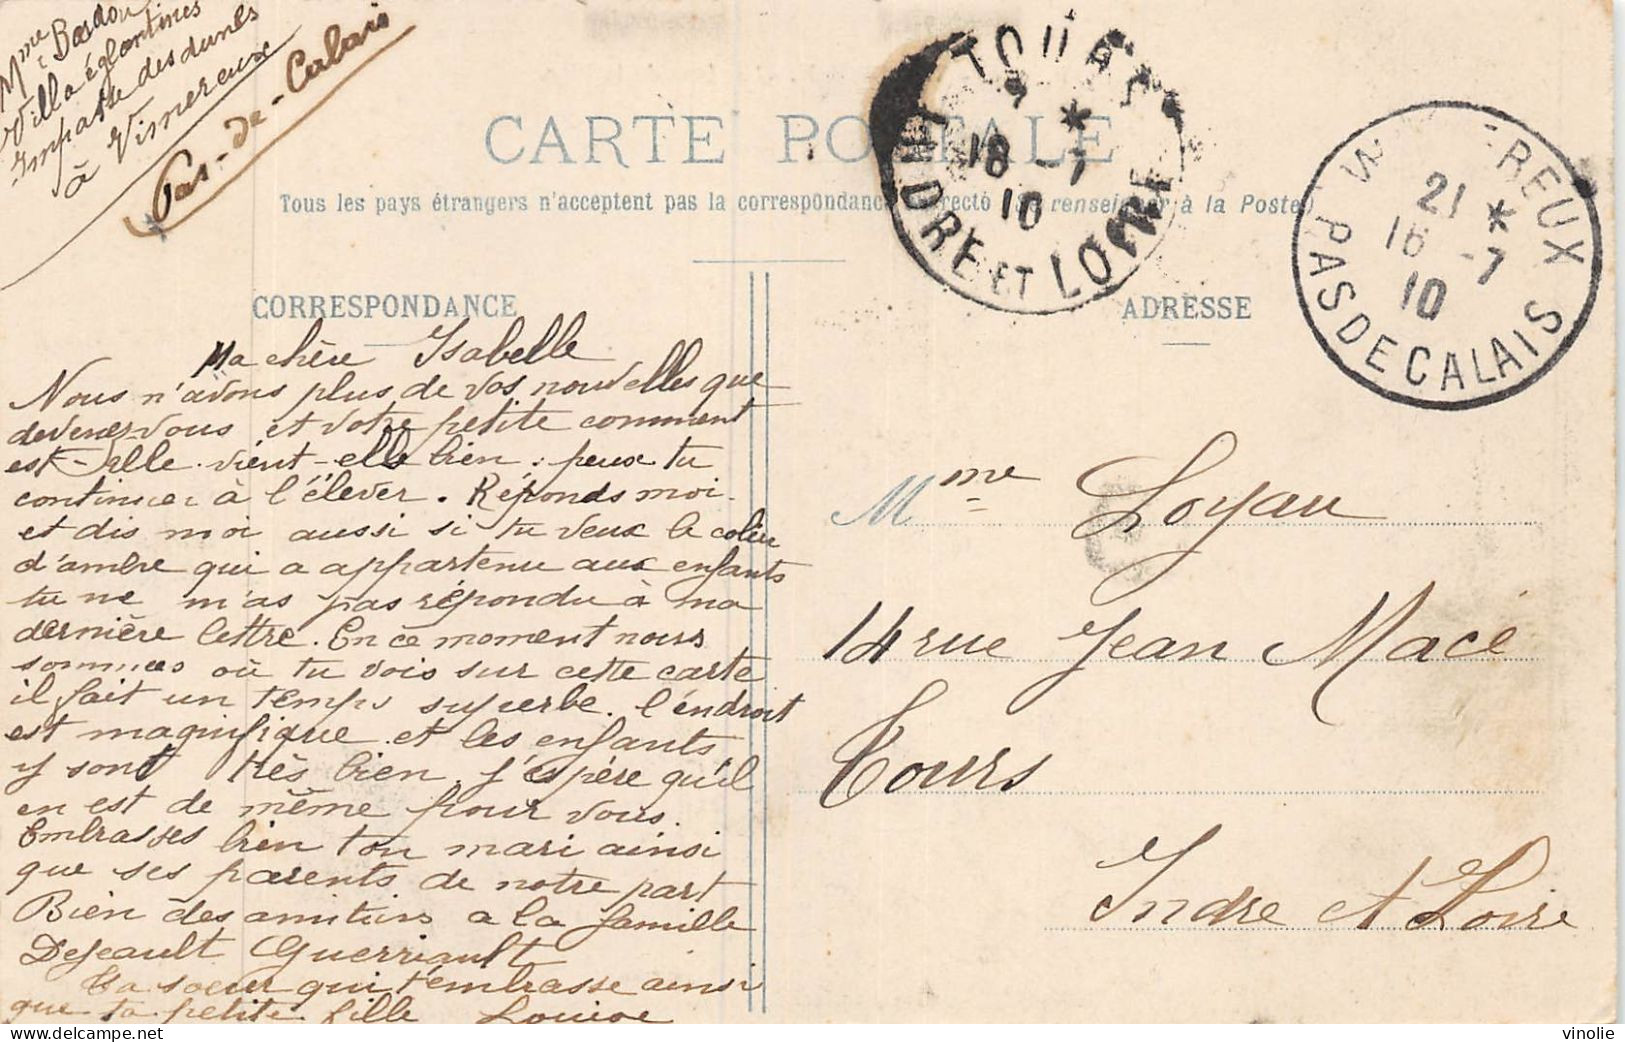 Mme Bardou
Villa églantines
Impasse des dunes
à Vimereux
Pas-de-Calais
CARTE POSTALE
Tous les pays étrangers n'acceptent pas la correspondance recto (Se renseigner à la Poste)
TOURS
18 -7
10
INDRE ET LOIRE
REUX
21 *
16 -7
10
PAS DE CALAIS
CORRESPONDANCE
ADRESSE
Ma chère Isabelle
Nous n'avons plus de vos nouvelles que
devenez-vous et votre petite comment
est-elle vient-elle bien : peux tu
continuer à l'élever. Réponds moi
et dis moi aussi si tu veux le colier
d'ambre qui a appartenu aux enfants
tu ne m'as pas répondu à ma
dernière lettre. En ce moment nous
sommes où tu vois sur cette carte
il fait un temps superbe. l'endroit
est magnifique et les enfants
y sont très bien. j'espère qu'il
en est de même pour vous.
Embrasses bien ton mari ainsi
que ses parents de notre part
Bien des amitiés a la famille
Dejeault Guerriault
Ta soeur qui t'embrasse ainsi
que ta petite fille Louise
Mme Loyau
14 rue Jean Macé
Tours
Indre et Loire
vinolie